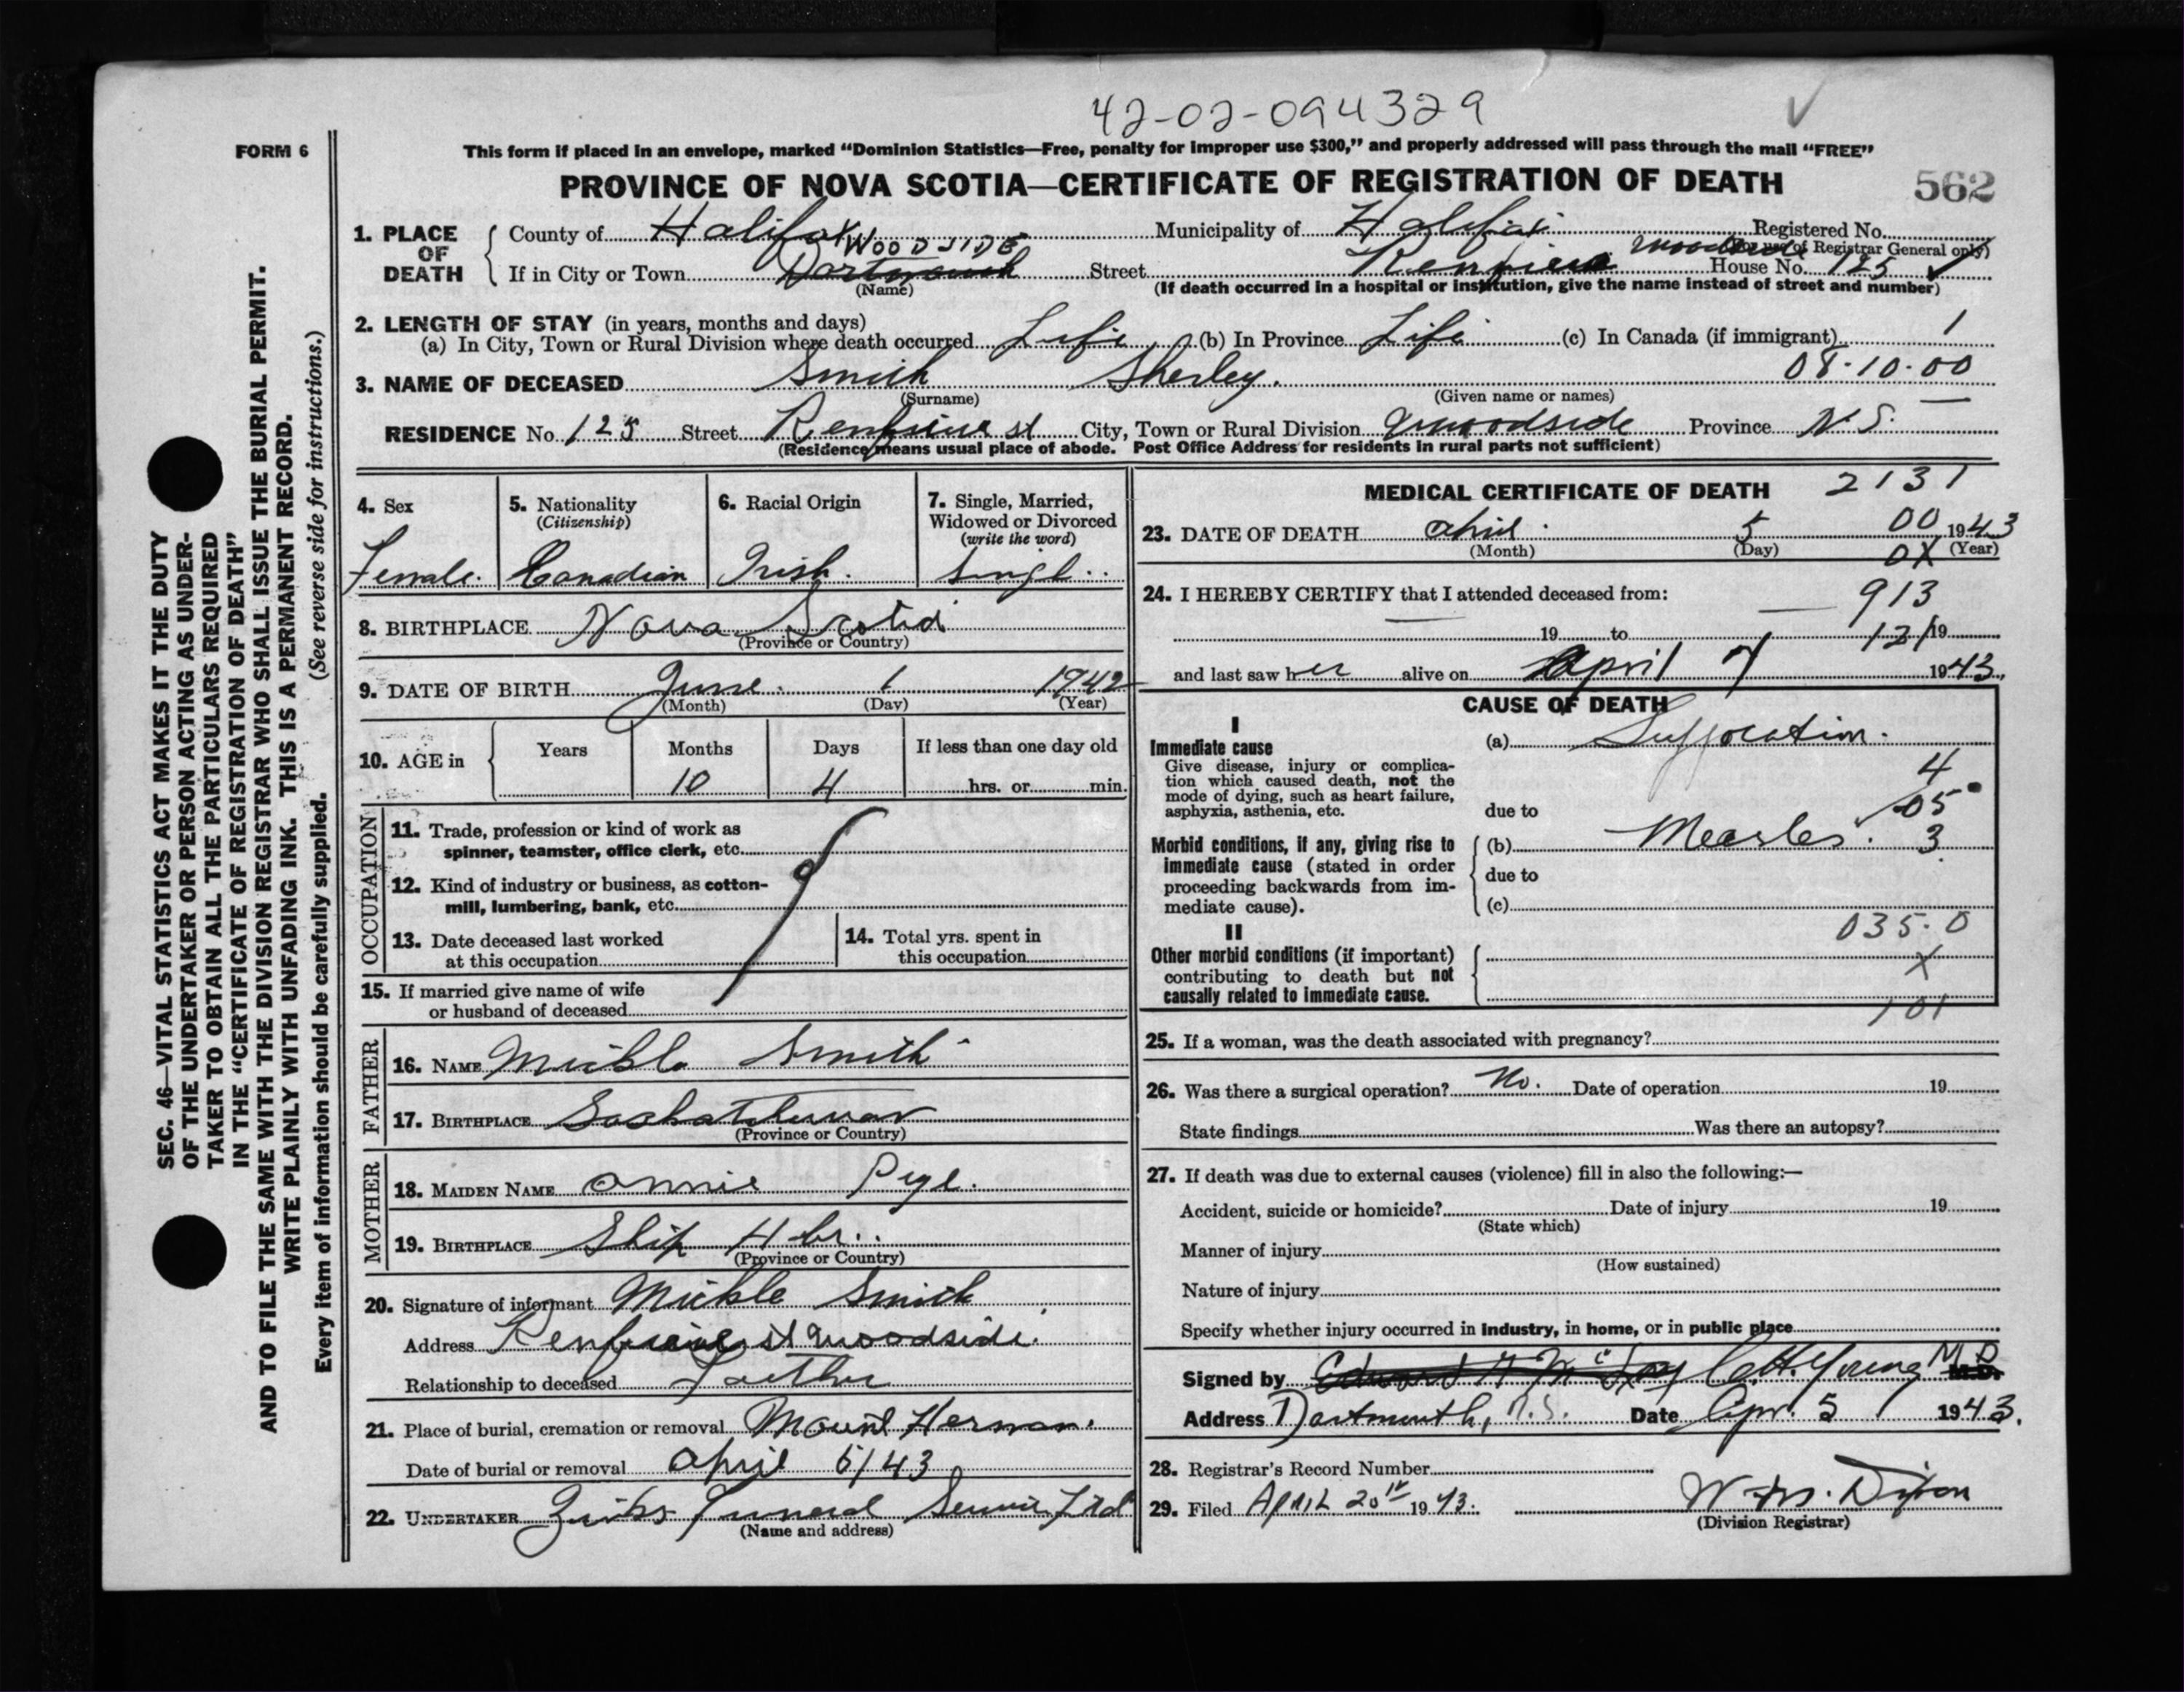 42-02-094329
FORM 6
This form if placed in an envelope, marked “Dominion Statistics—Free, penalty for improper use $300,” and properly addressed will pass through the mail “FREE”
PROVINCE OF NOVA SCOTIA—CERTIFICATE OF REGISTRATION OF DEATH 562
1. PLACE OF DEATH
County of Halifax Municipality of Halifax Registered No.
(For use of Registrar General only)
WOODSIDE
If in City or Town Dartmouth Street House No. 125
(Name) (If death occurred in a hospital or institution, give the name instead of street and number)
2. LENGTH OF STAY (in years, months and days)
(a) In City, Town or Rural Division where death occurred Life (b) In Province Life (c) In Canada (if immigrant) 1
08-10-00
3. NAME OF DECEASED Smith Sherley.
(Surname) (Given name or names)
RESIDENCE No. 125 Street City, Town or Rural Division Woodside Province N.S.
(Residence means usual place of abode. Post Office Address for residents in rural parts not sufficient)
4. Sex 5. Nationality (Citizenship) 6. Racial Origin 7. Single, Married, Widowed or Divorced (write the word)
Female. Canadian Irish. Singl.
8. BIRTHPLACE Nova Scotia
(Province or Country)
9. DATE OF BIRTH June 1 1942
(Month) (Day) (Year)
10. AGE in Years Months Days If less than one day old
10 4 hrs. or min.
OCCUPATION
11. Trade, profession or kind of work as
spinner, teamster, office clerk, etc.
12. Kind of industry or business, as cotton-
mill, lumbering, bank, etc.
13. Date deceased last worked
at this occupation
14. Total yrs. spent in
this occupation
15. If married give name of wife
or husband of deceased
FATHER
16. NAME Mickle Smith
17. BIRTHPLACE Saskatchewan
(Province or Country)
MOTHER
18. MAIDEN NAME Annie
19. BIRTHPLACE Ship Hbr.
(Province or Country)
20. Signature of informant Mickle Smith
Address st Woodside.
Relationship to deceased Father
21. Place of burial, cremation or removal Mount Herman.
Date of burial or removal April /43
22. UNDERTAKER Funeral Service Ltd
(Name and address)
MEDICAL CERTIFICATE OF DEATH 2131
00
23. DATE OF DEATH April 5 1943
(Month) (Day) (Year)
0X
24. I HEREBY CERTIFY that I attended deceased from: 913
19 to 19
121
and last saw her alive on April 1943.
CAUSE OF DEATH
I
Immediate cause
Give disease, injury or complica-
tion which caused death, not the
mode of dying, such as heart failure,
asphyxia, asthenia, etc.
(a) Suffocation.
4
05
due to
Morbid conditions, if any, giving rise to
immediate cause (stated in order
proceeding backwards from im-
mediate cause).
(b) Measles. 3
due to
(c)
035.0
II
Other morbid conditions (if important)
contributing to death but not
causally related to immediate cause.
X
101
25. If a woman, was the death associated with pregnancy?
26. Was there a surgical operation? No. Date of operation 19
State findings Was there an autopsy?
27. If death was due to external causes (violence) fill in also the following:—
Accident, suicide or homicide? Date of injury 19
(State which)
Manner of injury
(How sustained)
Nature of injury
Specify whether injury occurred in industry, in home, or in public place
Signed by Young M.D. M.D.
Address Dartmouth, N.S. Date Apr. 5 1943.
28. Registrar's Record Number
29. Filed APRIL 20th 1943. Dixon
(Division Registrar)
SEC. 46—VITAL STATISTICS ACT MAKES IT THE DUTY
OF THE UNDERTAKER OR PERSON ACTING AS UNDER-
TAKER TO OBTAIN ALL THE PARTICULARS REQUIRED
IN THE “CERTIFICATE OF REGISTRATION OF DEATH”
AND TO FILE THE SAME WITH THE DIVISION REGISTRAR WHO SHALL ISSUE THE BURIAL PERMIT.
WRITE PLAINLY WITH UNFADING INK. THIS IS A PERMANENT RECORD.
Every item of information should be carefully supplied. (See reverse side for instructions.)